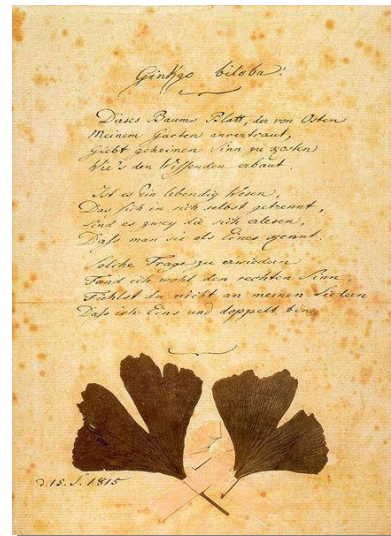 Ginkgo biloba.
Dieses Baums Blatt, der von Osten
Meinem Garten anvertraut,
Giebt geheimen Sinn zu kosten
Wie's den Wissenden erbaut.
Ist es Ein lebendig Wesen,
Das sich in sich selbst getrennt,
Sind es zwey die sich erlesen,
Dass man sie als Eines kennt.
Solche Frage zu erwiedern
Fand ich wohl den rechten Sinn
Fühlst du nicht an meinen Liedern
Dass ich Eins und doppelt bin
d. 15. S. 1815